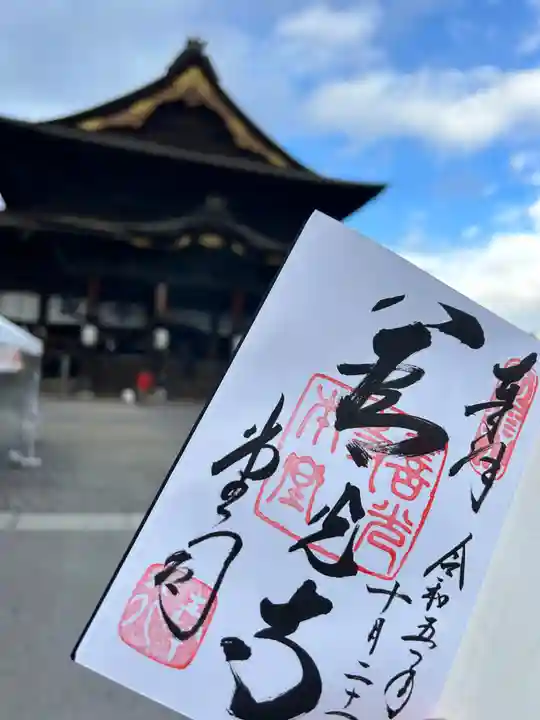 奉拝
令和五年
十月二十
善光寺
堂司
善光寺
本堂